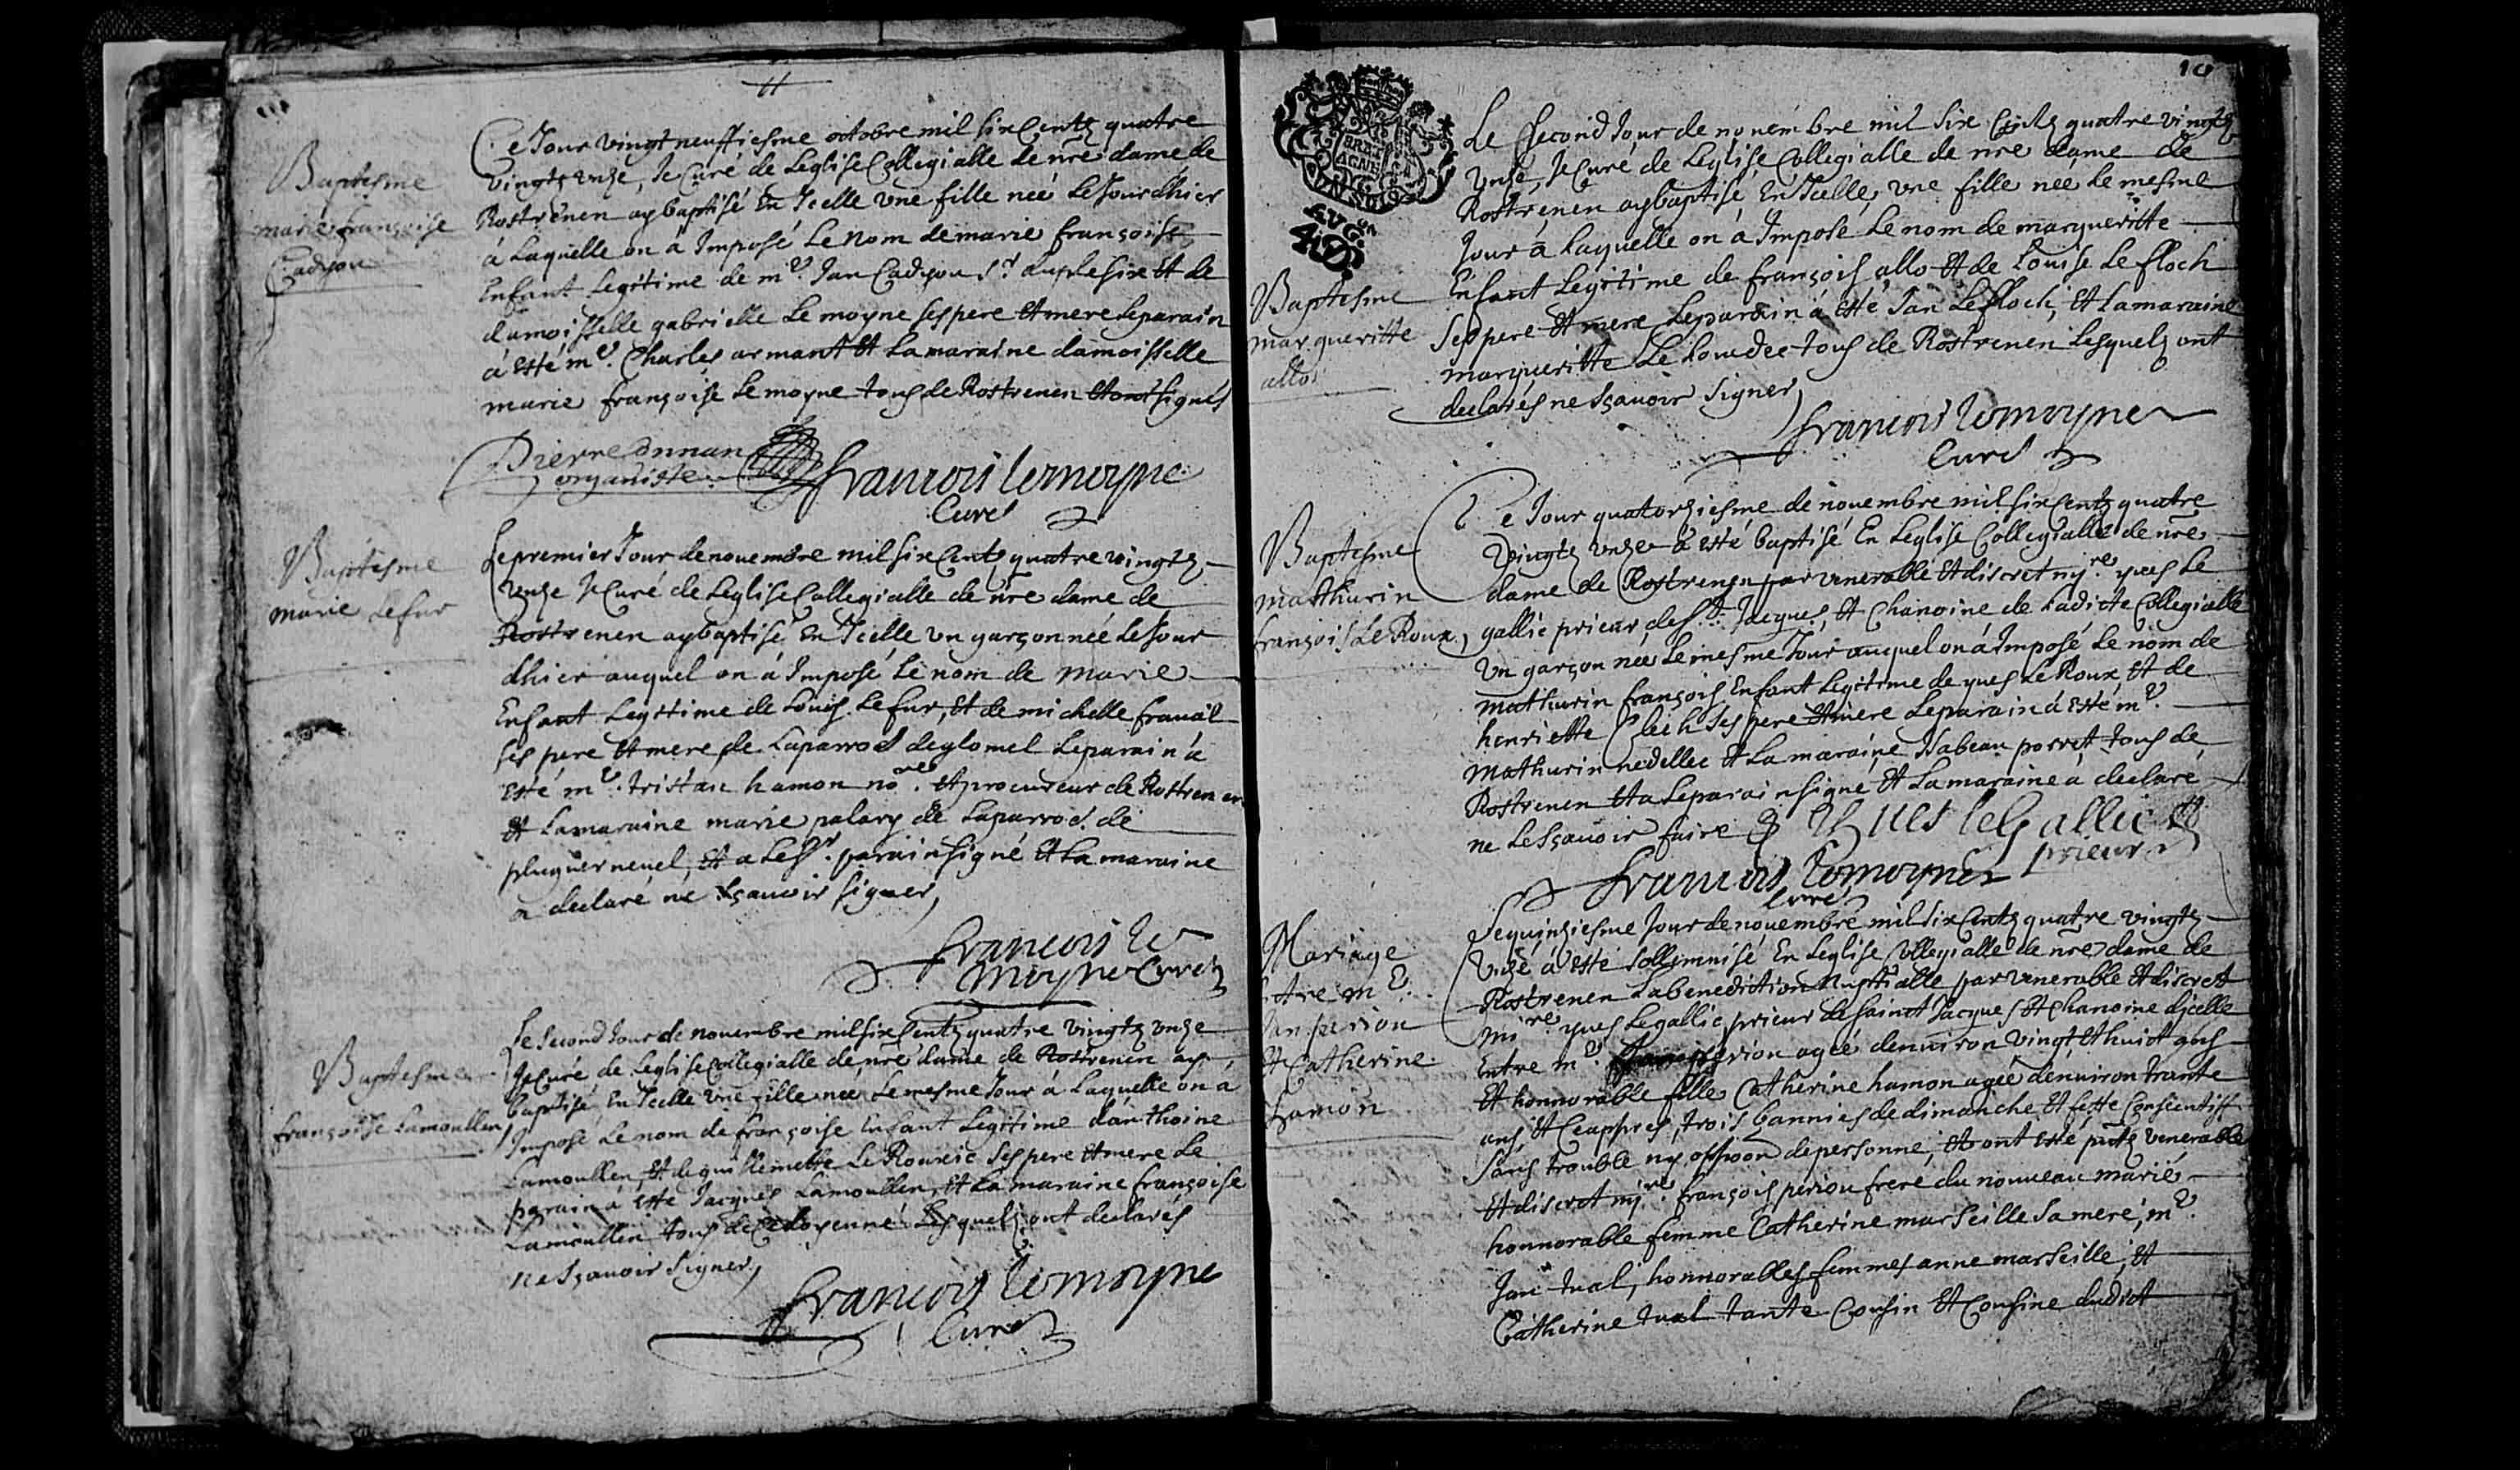 Baptesme
marie françoise
Cadyou
Ce Jour vingt neuffiesme octobre mil six Centz quatre
vingtz unze, Je Curé de Leglise Collegialle de nre dame de
Rostrenen ay baptisé En Icelle vne fille neé Le Jour dhier
à Laquelle on à Imposé Le Nom de marie françoise
Enfant Legitime de me. Jan Cadyou sr. duplesix Et de
damoisselle gabrielle Le moyne ses pere Et mere Le parain
à esté me. Charles armant Et La maraine damoisselle
marie françoise Le moyne tous de Rostrenen Et ont signés
Pierre onnan
organiste
francois lemoyne
Curé
Baptesme
marie Lefur
Le premier Jour de nouembre mil six Centz quatre vingtz
Vnze Je Curé de Leglise Collegialle de nre dame de
Rostrenen ay baptisé En Icelle vn garçon neé Le Jour
dhier auquel on à Imposé Le nom de marie
Enfant Legitime de Louis Lefur, Et de michelle fraual
ses pere Et mere de Laparrod deglomel Le parain à
Esté me. tristan hamon nore. Et procureur de Rostrenen
Et La maraine marie palary de Laparrod de
pluguerneuel, Et a Le Sr. parain signé Et La maraine
a declaré ne sçauoir signer,
francois le
moyne Curé
Baptesme
françoise Lamoullen
Le Second Jour de nouembre mil six Centz quatre vingtz vnze
Je Curé de Leglise Collegialle de nre dame de Rostrenen ay
baptisé En Icelle vne fille neé Le mesme Jour à Laquelle on à
Imposé Le nom de françoise Enfant Legitime danthoine
Lamoullen, Et de guillemette Le Rouxic ses pere Et mere Le
parain à esté Jacques Lamoullen, Et La maraine françoise
Lamoullen tous de Lesquelz ont declarés
ne sçauoir signer,
francois lemoyne
Curé
10
Baptesme
margueritte
allo
Le Second Jour de nouembre mil six Centz quatre vingtz
vnze, Je Curé de Leglise Collegialle de nre dame de
Rostrenen ay baptisé En Icelle, vne fille neé Le mesme
Jour à Laquelle on à Imposé Le nom de margueritte
Enfant Legitime de françois allo Et de Louise Le floch
ses pere Et mere Le parain à esté Jan Le floch, Et La maraine
margueritte Le Loudec tous de Rostrenen Lesquelz ont
declarés ne sçauoir signer,
francois lemoyne
Curé
Baptesme
matthurin
françois Le Roux,
Ce Jour quatorziesme de nouembre mil six Centz quatre
vingtz vnze à esté baptisé En Leglise Collegialle de nre
dame de Rostrenen par venerable Et discret mire. yues Le
gallic prieur de St. Jacques, Et Chanoine de Ladicte Collegialle
Vn garçon neé Le mesme Jour auquel on à Imposé Le nom de
mathurin françois Enfant Legitime de yues Le Roux Et de
henriette Cleih ses pere Et mere Le parain à Esté me.
mathurin nedellec Et La maraine Isabeau porret tous de
Rostrenen Et a Le parain signé Et La maraine à declaré
ne Le sçauoir faire
Yues le Gallic
prieur
francois lemoyne
Curé
Mariage
Entre me.
Jan perion
Et Catherine
hamon
Le quinziesme Jour de nouembre mil six Centz quatre vingtz
Vnze à esté sollemnisé En Leglise Collegialle de nre dame de
Rostrenen La benediction Nuptialle par venerable Et discret
mire yues Le gallic prieur de sainct Jacques Et Chanoine dicelle
Entre me. perion ageé denuiron vingt Et huict ans
Et honnorable fille Catherine hamon ageé denuiron trante
ans Et Ce appres, trois bannies de dimanche Et feste Consecutiff
sans trouble ny opposon de personne, Et ont esté pntz venerable
Et discret mire. françois periou frere du nouueau marié
honnorable femme Catherine marseille sa mere, me.
Jan tual, honnorables femmes anne marseille, Et
Catherine tual tante Cousin Et Cousine dudict